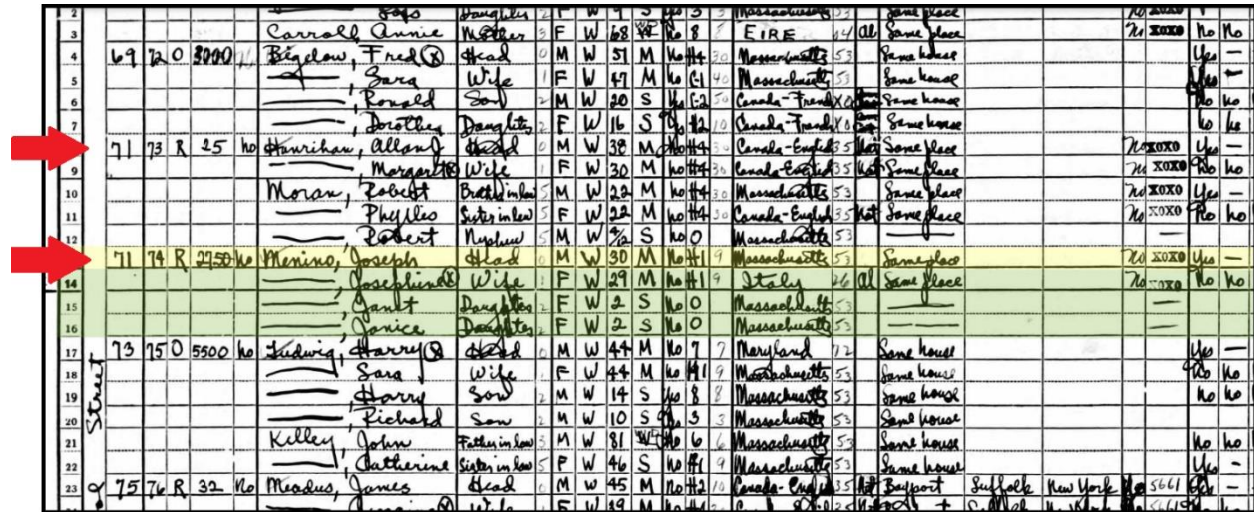 2 Daughter 2 F W 9 S Yes 3 3 Massachusetts Same place No XOXO
3 Carroll Annie Mother 3 F W 68 No 8 8 EIRE 14 Al Same place No XOXO No No
4 69 72 O 3000 Bigelow, Fred X Head 0 M W 51 M No H4 30 Massachusetts 53 Same house Yes —
5 ——, Sara Wife 1 F W 47 M No C-1 40 Massachusetts 53 Same house —
6 ——, Ronald Son 2 M W 20 S Yes C-2 50 Canada-French X0 Same house No No
7 ——, Dorothea Daughter 2 F W 16 S H2 10 Canada-French X0 Same house No No
8 71 73 R 25 no Hanrihan, Allan J Head 0 M W 38 M No H4 30 Canada-English 35 Nat Same place No XOXO Yes —
9 ——, Margaret X Wife 1 F W 30 M No H4 30 Canada-English 35 Nat Same place No XOXO No No
10 Moran, Robert Brother in law 5 M W 22 M No H4 30 Massachusetts 53 Same place No XOXO Yes —
11 ——, Phyllis Sister in law 5 F W 22 M No H4 30 Canada-English 35 Nat Same place No XOXO No No
12 ——, Robert Nephew 5 M W 4/12 S No 0 Massachusetts 53 —— —
71 74 R 2750 No Menino, Joseph Head 0 M W 30 M No H1 9 Massachusetts 53 Same place No XOXO Yes —
14 ——, Josephine X Wife 1 F W 29 M No H1 9 Italy 26 Al Same place No XOXO No No
15 ——, Janet Daughter 2 F W 2 S No 0 Massachusetts 53 —— —
16 ——, Janice Daughter 2 F W 2 S No 0 Massachusetts 53 —— —
17 73 75 O 5500 No Ludwig, Harry X Head 0 M W 44 M No 7 7 Maryland 72 Same house Yes —
18 ——, Sara Wife 1 F W 44 M No H1 9 Massachusetts 53 Same house No No
19 ——, Harry Son 2 M W 14 S Yes 8 8 Massachusetts 53 Same house No No
20 ——, Richard Son 2 M W 10 S 3 3 Massachusetts 53 Same house
21 Killey, John Father in law 3 M W 81 No 6 6 Massachusetts 53 Same house No No
22 ——, Catherine Sister in law 5 F W 46 S No H1 9 Massachusetts 53 Same house Yes —
23 75 76 R 32 No Meadus, James Head 0 M W 45 M No H2 10 Canada-English 35 Nat Bayport Suffolk New York No 5661 Yes —
Wife F W 39 M
Street